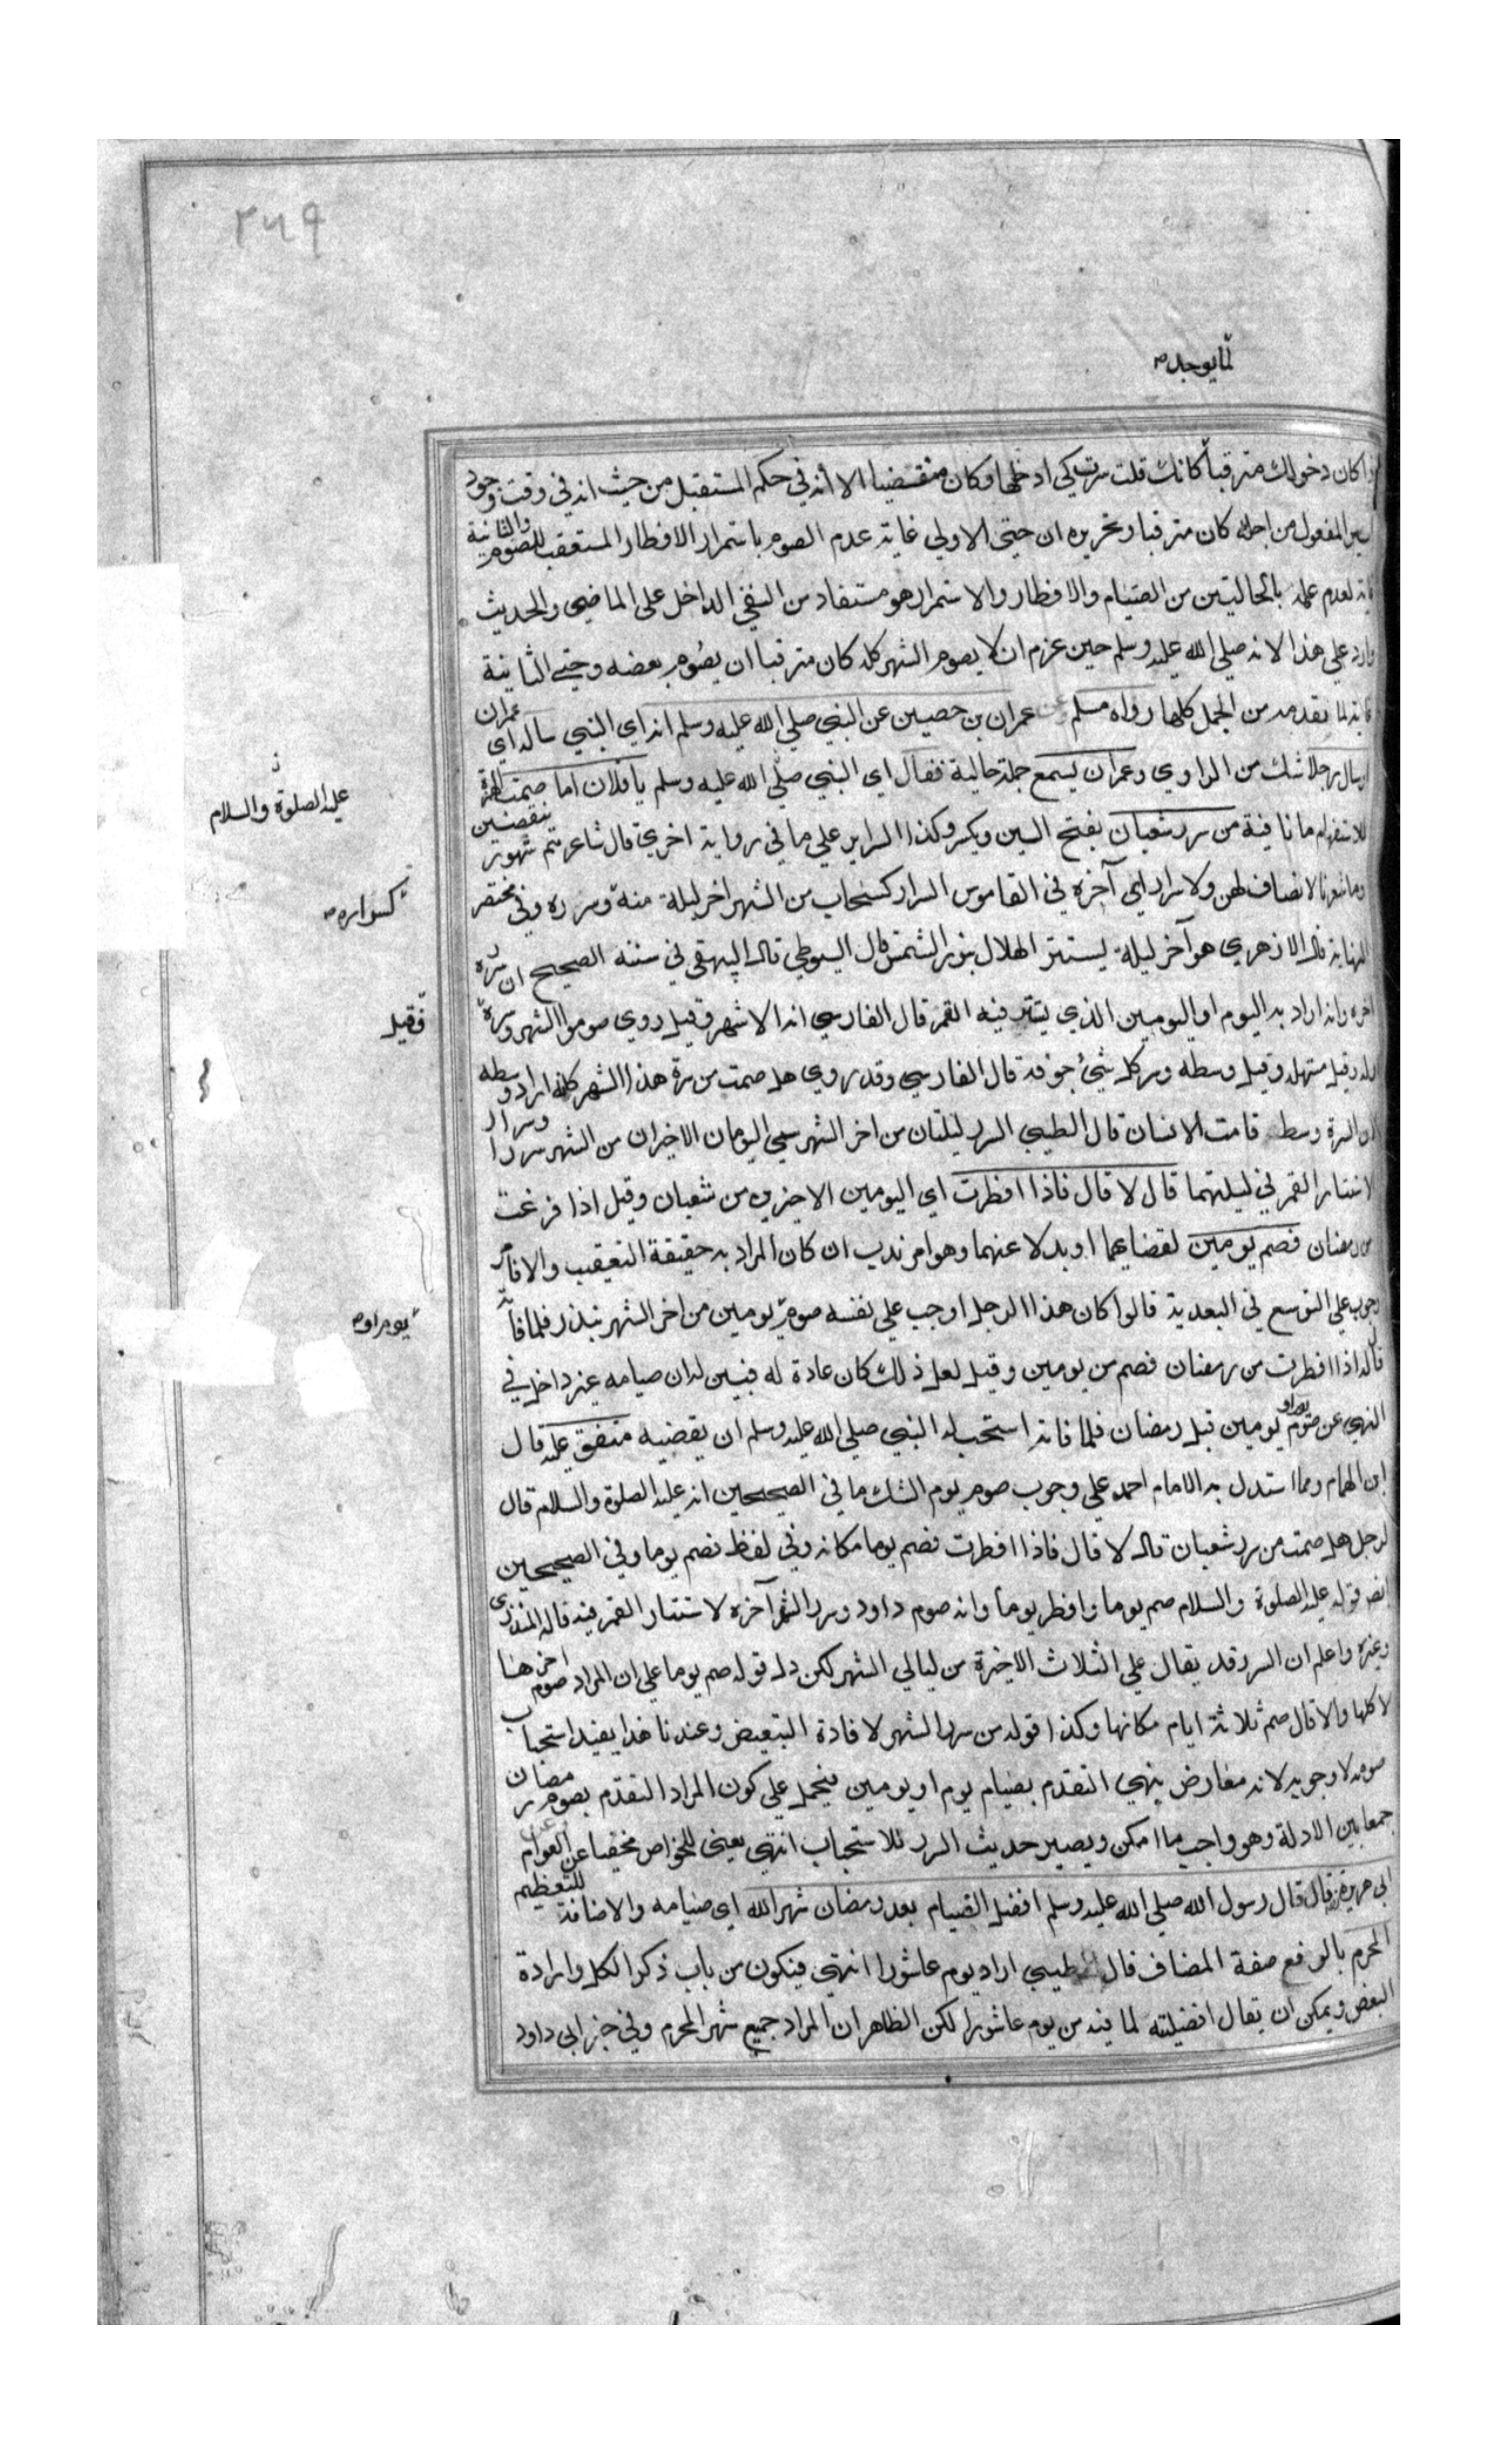 ٢٦٩
لما يوجد
اذا كان دخولك مترقبا كانك قلت سرت كي ادخلها وكان منقضيا الا انه في حكم المستقبل من حيث انه في وقت وجود
السير المفعول من اجله كان مترقبا وتحريره ان حتى الاولى غاية عدم الصوم باستمرار الافطار المستعقب للصوم والثانية
غاية لعدم علمه بالحالتين من الصيام والافطار والاستمرار هو مستفاد من النفي الداخل على الماضي والحديث
وارد على هذا لانه صلى الله عليه وسلم حين عزم ان لا يصوم الشهر كله كان مترقبا ان يصوم بعضه وحتى الثانية
غاية لما تقدمه من الجمل كلها رواه مسلم عن عمران بن حصين عن النبي صلى الله عليه وسلم انه اي النبي ساله اي عمران
او سال رجلا شك من الراوي وعمران يسمع جملة حالية فقال اي النبي صلى الله عليه وسلم يا فلان اما صمت الهمزة
عليه الصلوة والسلام
للاستفهام وما نافية من سرر شعبان بفتح السين ويكسر وكذا السرار على ما في رواية اخرى قال شاعرهم شهور ينقضين
وما شعرنا لانصاف لهن ولا سرار اي آخره في القاموس السرار كسحاب من الشهر اخر ليلة منه وسرره وفي مختصر
كسراره
النهاية قال الازهري هو آخر ليلة يستتر الهلال بنور الشمس قال السيوطي قال البيهقي في سننه الصحيح ان سره
اخره وانه اراد به اليوم او اليومين الذي يتستر فيه القمر قال الفارسي انه الاشهر وقيل روي صوموا الشهر وسره
فقيل
اوله وقيل مستهله وقيل وسطه وسر كل شئ جوفه قال الفارسي وقد روي هل صمت من سرة هذا الشهر كانه اراد وسطه
لان السرة وسط قامة الانسان قال الطيبي السرر ليلتان من اخر الشهر سمي اليومان الاخيران من الشهر سررا وسرارا
لاستتار القمر في ليلتهما قال لا قال فاذا افطرت اي اليومين الاخيرين من شعبان وقيل اذا فرغت
من رمضان فصم يومين لقضائهما او بدلا عنهما وهو امر ندب ان كان المراد به حقيقة التعقيب والا فامر
وجوب على التوسع في البعدية قالوا كان هذا الرجل اوجب على نفسه صوم يومين من اخر الشهر بنذر فلما فاته
يوم او
قال له اذا افطرت من رمضان فصم من يومين وقيل لعل ذلك كان عادة له فبين له ان صيامه غير داخل في
النهي عن صوم يوم او يومين قبل رمضان فلما فاته استحب له النبي صلى الله عليه وسلم ان يقضيه متفق عليه قال
ابن الهمام ومما استدل به الامام احمد على وجوب صوم يوم الشك ما في الصحيحين انه عليه الصلوة والسلام قال
لرجل هل صمت من سرر شعبان قال لا قال فاذا افطرت فصم يوما مكانه وفي لفظ فصم يوما وفي الصحيحين
ايضا قوله عليه الصلوة والسلام صم يوما وافطر يوما وانه صوم داود وسرر الشهر آخره لاستتار القمر فيه قاله المنذري
وغيره واعلم ان السرر قد يقال على الثلاث الاخيرة من ليالي الشهر لكن دل قوله صم يوما على ان المراد صوم اخرها
لا كلها والا قال صم ثلاثة ايام مكانها وكذا قوله من سرر الشهر لافادة التبعيض وعندنا هذا يفيد استحباب
صومه لا وجوبه لانه معارض بنهي التقدم بصيام يوم او يومين فيحمل على كون المراد التقدم بصوم رمضان
جمعا بين الادلة وهو واجب ما امكن ويصير حديث السرر للاستحباب انتهى يعني للخواص مخفيا عن العوام وعن
ابي هريرة قال قال رسول الله صلى الله عليه وسلم افضل الصيام بعد رمضان شهر الله اي صيامه والاضافة للتعظيم
المحرم بالرفع صفة المضاف قال الطيبي اراد يوم عاشورا انتهى فيكون من باب ذكر الكل وارادة
البعض ويمكن ان يقال افضليته لما فيه من يوم عاشورا لكن الظاهر ان المراد جميع شهر المحرم وفي خبر ابي داود